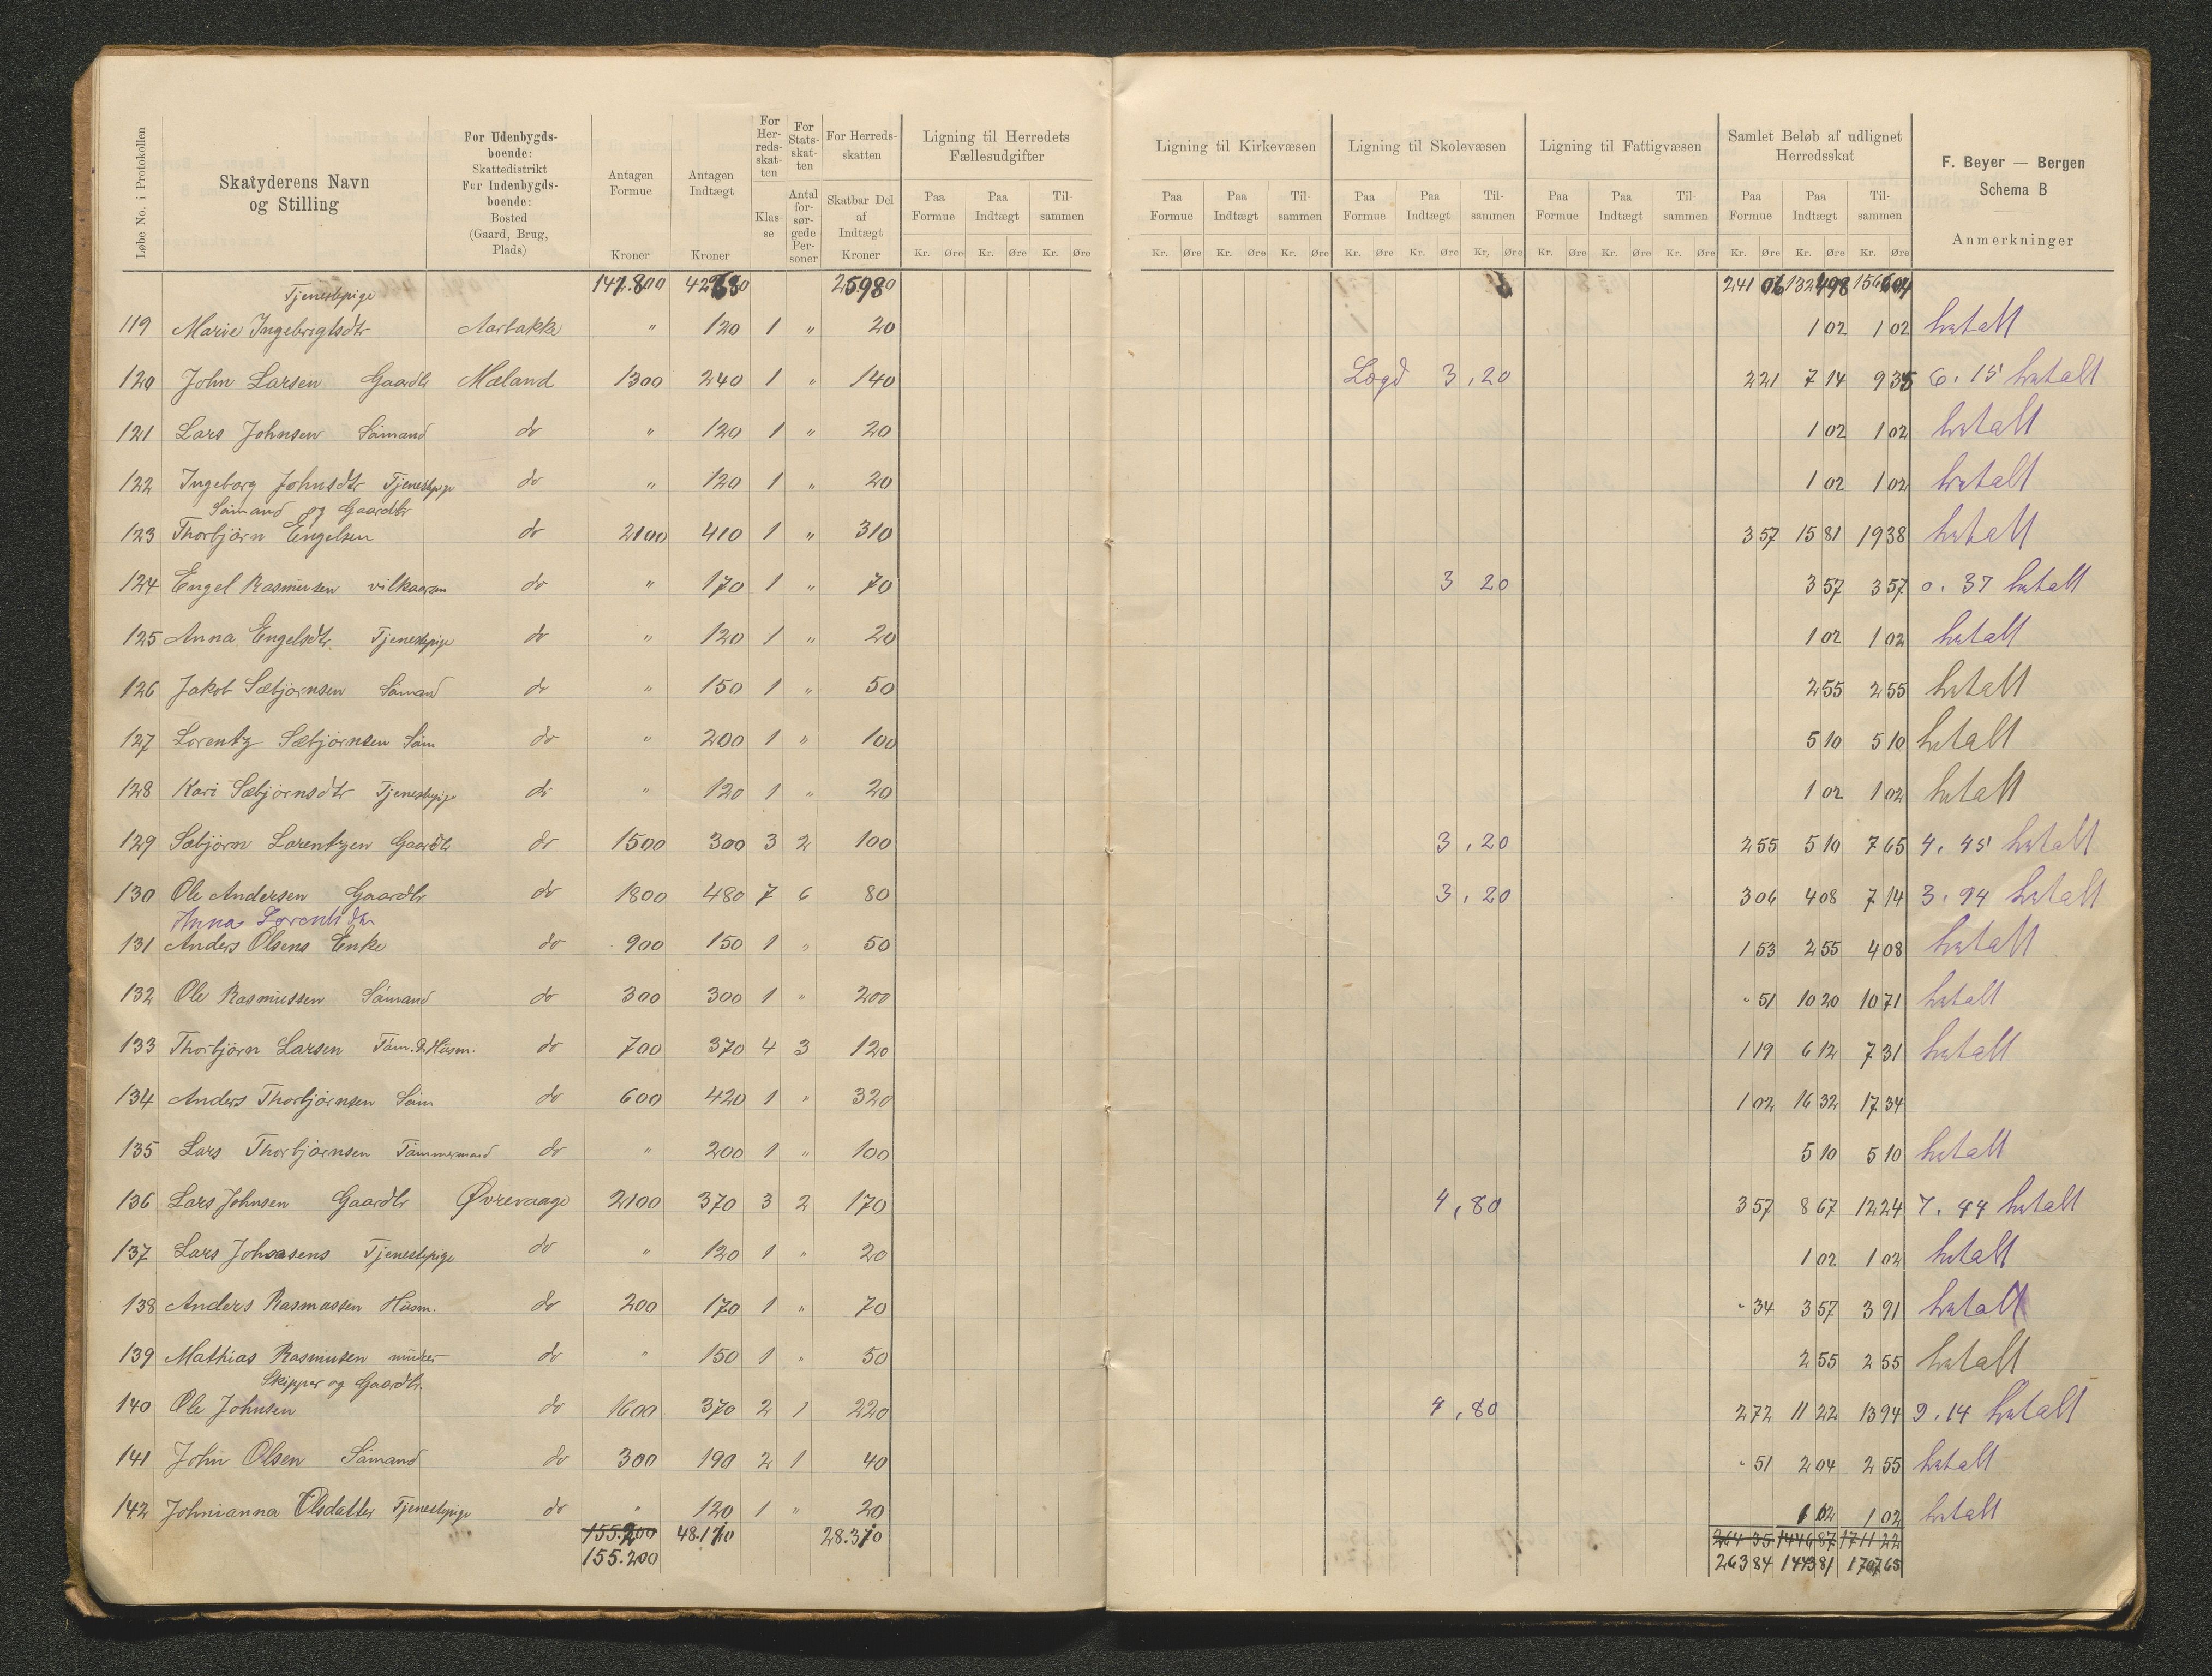 Løbe No. i Protokollen
Skatyderens Navn og Stilling
For Udenbygds-boende: Skattedistrikt For Indenbygds-boende: Bosted (Gaard, Brug, Plads)
Antagen Formue Kroner
Antagen Indtægt Kroner
For Her-reds-skat-ten Klas-se
For Stats-skat-ten Antal for-sør-gede Per-soner
For Herreds-skatten Skatbar Del af Indtægt Kroner
Ligning til Herredets Fællesudgifter
Paa Formue Paa Indtægt Til-sammen
Kr. Øre Kr. Øre Kr. Øre
Ligning til Kirkevæsen
Paa Formue Paa Indtægt Til-sammen
Kr. Øre Kr. Øre Kr. Øre
Ligning til Skolevæsen
Paa Formue Paa Indtægt Til-sammen
Kr. Øre Kr. Øre Kr. Øre
Ligning til Fattigvæsen
Paa Formue Paa Indtægt Til-sammen
Kr. Øre Kr. Øre Kr. Øre
Samlet Beløb af udlignet Herredsskat
Paa Formue Paa Indtægt Til-sammen
Kr. Øre Kr. Øre Kr. Øre
F. Beyer — Bergen
Schema B
Anmerkninger
141.800
Tjenestepige
119 Marie Ingebrigtsdtr Aarbakke " 120 1 " 20 1 02 1 02 betalt
120 John Larsen Gaardbr Mæland 1300 240 1 " 140 Lægd 3,20 2 21 7 14 9 35 6.15 betalt
121 Lars Johnsen Sömand do " 120 1 " 20 1 02 1 02 betalt
122 Ingeborg Johnsdtr Tjenestepige do " 120 1 " 20 1 02 1 02 betalt
Sömand og Gaardbr
123 Thorbjörn Engelsen do 2100 410 1 " 310 3 57 15 81 19 38 betalt
124 Engel Rasmusen do " 170 1 " 70 3 20 3 57 3 57 0.37 betalt
125 Anna Engelsdtr. Tjenestepige do " 120 1 " 20 1 02 1 02 betalt
126 Jakob Sæbjörnsen Sömand do " 150 1 " 50 2 55 2 55 betalt
127 Lorentz Sæbjörnsen Söm do " 200 1 " 100 5 10 5 10 betalt
128 Kari Sæbjörnsdtr Tjenestepige do " 120 1 " 20 1 02 1 02 betalt
129 Sæbjörn Lorentzen Gaardbr do 1500 300 3 2 100 3,20 2 55 5 10 7 65 4.45 betalt
130 Ole Andersen Gaardbr do 1800 480 7 6 80 3,20 3 06 4 08 7 14 3.94 betalt
Anna
131 Anders Olsens Enke do 900 150 1 " 50 1 53 2 55 4 08 betalt
132 Ole Rasmussen Sömand do 300 300 1 " 200 " 51 10 20 10 71 betalt
133 Thorbjörn Larsen Töm. & Husm. do 700 370 4 3 120 1 19 6 12 7 31 betalt
134 Anders Thorbjörnsen Söm do 600 420 1 " 320 1 02 16 32 17 34
135 Lars Thorbjörnsen Tömmermand do " 200 1 " 100 5 10 5 10 betalt
136 Lars Johnsen Gaardbr Øvrevaage 2100 370 3 2 170 4,80 3 57 8 67 12 24 7.44 betalt
137 Lars Tjenestepige do " 120 1 " 20 1 02 1 02 betalt
138 Anders Rasmussen Husm. do 200 170 1 " 70 " 34 3 57 3 91 betalt
139 Mathias Rasmusen murer do " 150 1 " 50 2 55 2 55 betalt
Skipper og Gaardbr.
140 Ole Johnsen do 1600 370 2 1 220 4,80 2 72 11 22 13 94 9.14 betalt
141 John Olsen Sömand do 300 190 2 1 40 " 51 2 04 2 55 betalt
142 Johnianna Olsdatter Tjenestepige do " 120 1 " 20 1 02 1 02 betalt
155.200 48.170 28.370 264 35 1446 87 1711 22
155.200 263 84 1443 81 1707 65